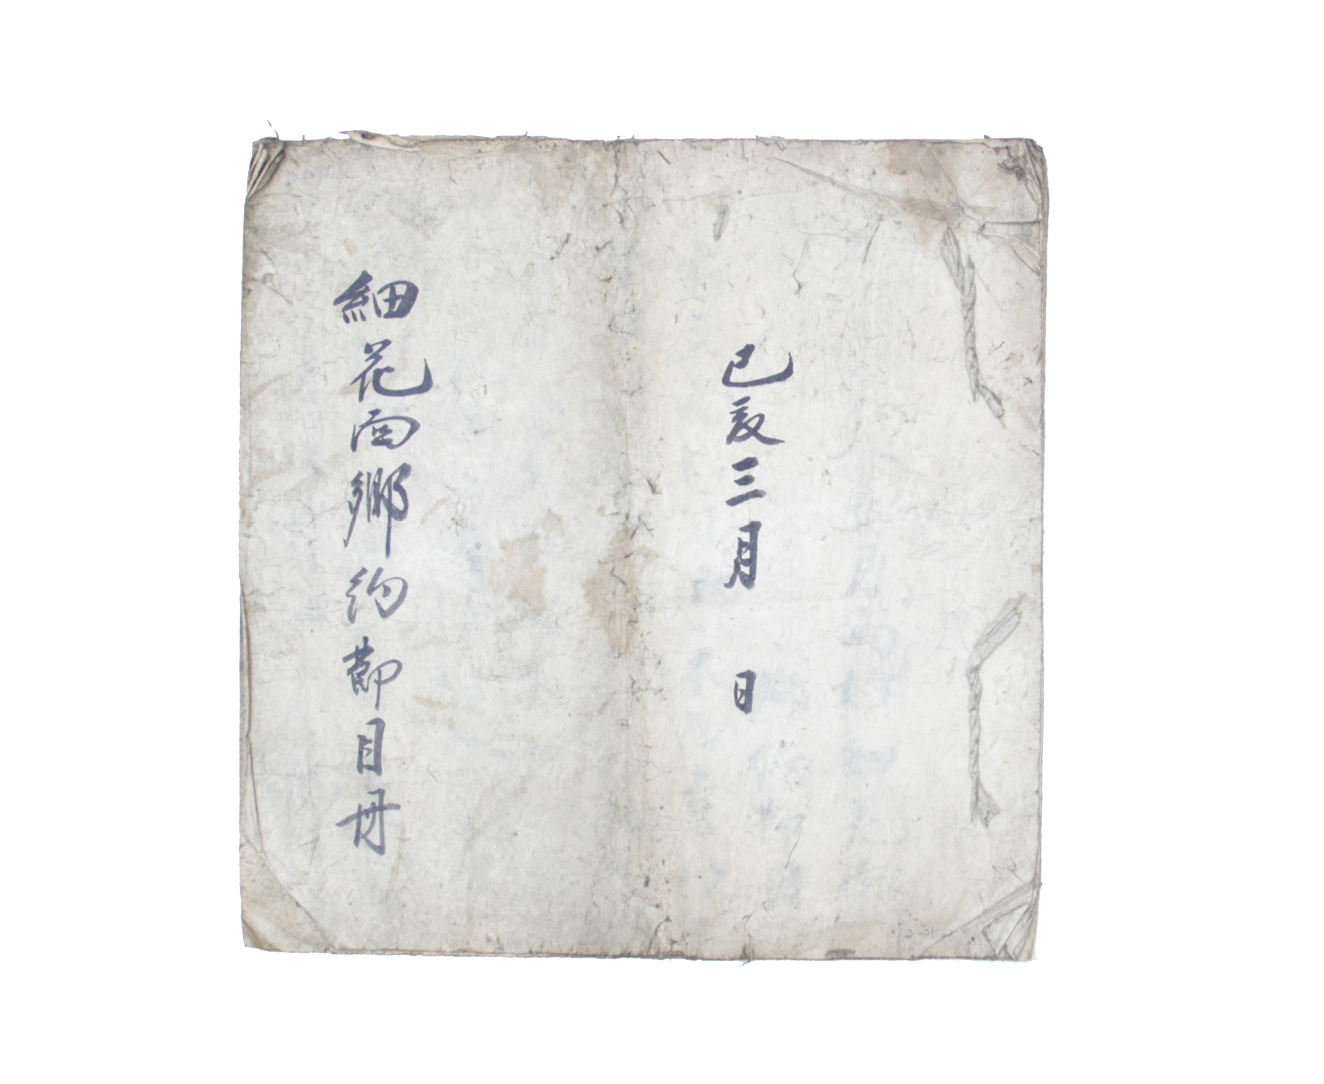 己亥三月 日
細花面鄕約節目冊